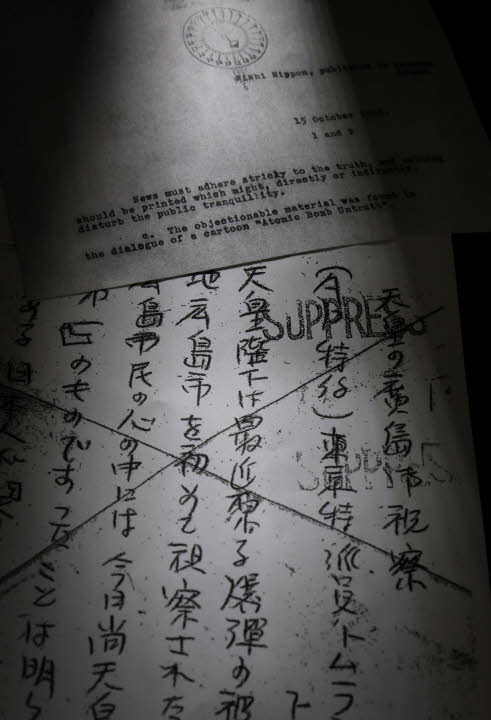 Nishi Nippon, published in
15 October
1 and 2
News must adhere stricly to the truth, and nothing
should be printed which might, directly or indirectly,
disturb the public tranquility.
c. The objectionable material was found in
the dialogue of a cartoon "Atomic Bomb Untruth".
SUPPRESS
SUPPRES
天皇の廣島市視察
特
東京特派員トムラ
天皇陛下は最近原子爆弾の被
地広島市を初めて視察された
島市民の心の中には今日尚天皇
のものです
ことは明ら